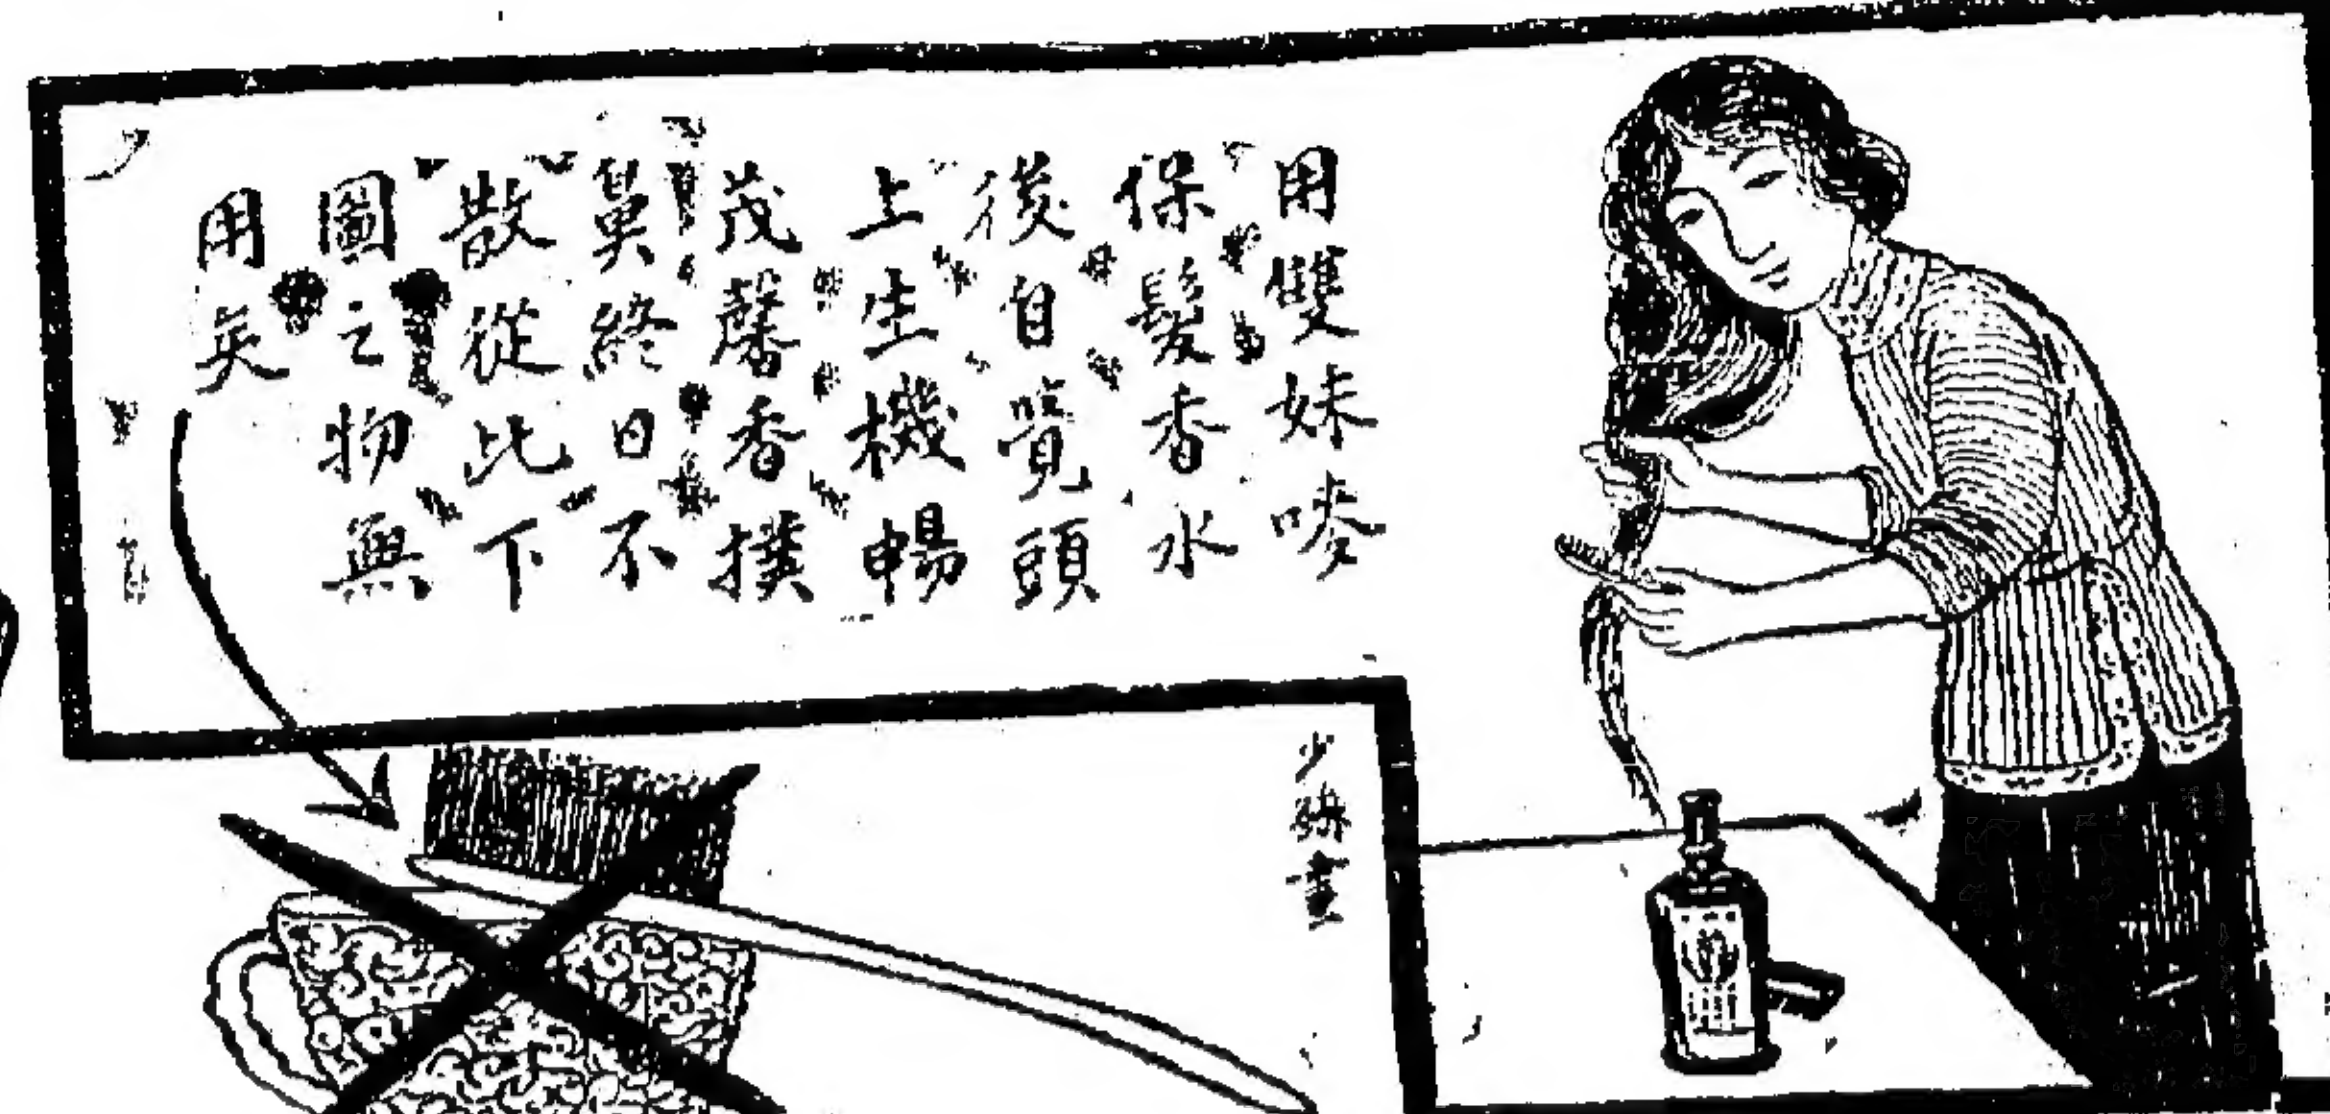 用雙妹嘜
保髮香水
後自覺頭
上生機暢
茂馨香撲
鼻終日不
散從此下
圖之物無
用矣
少
畫